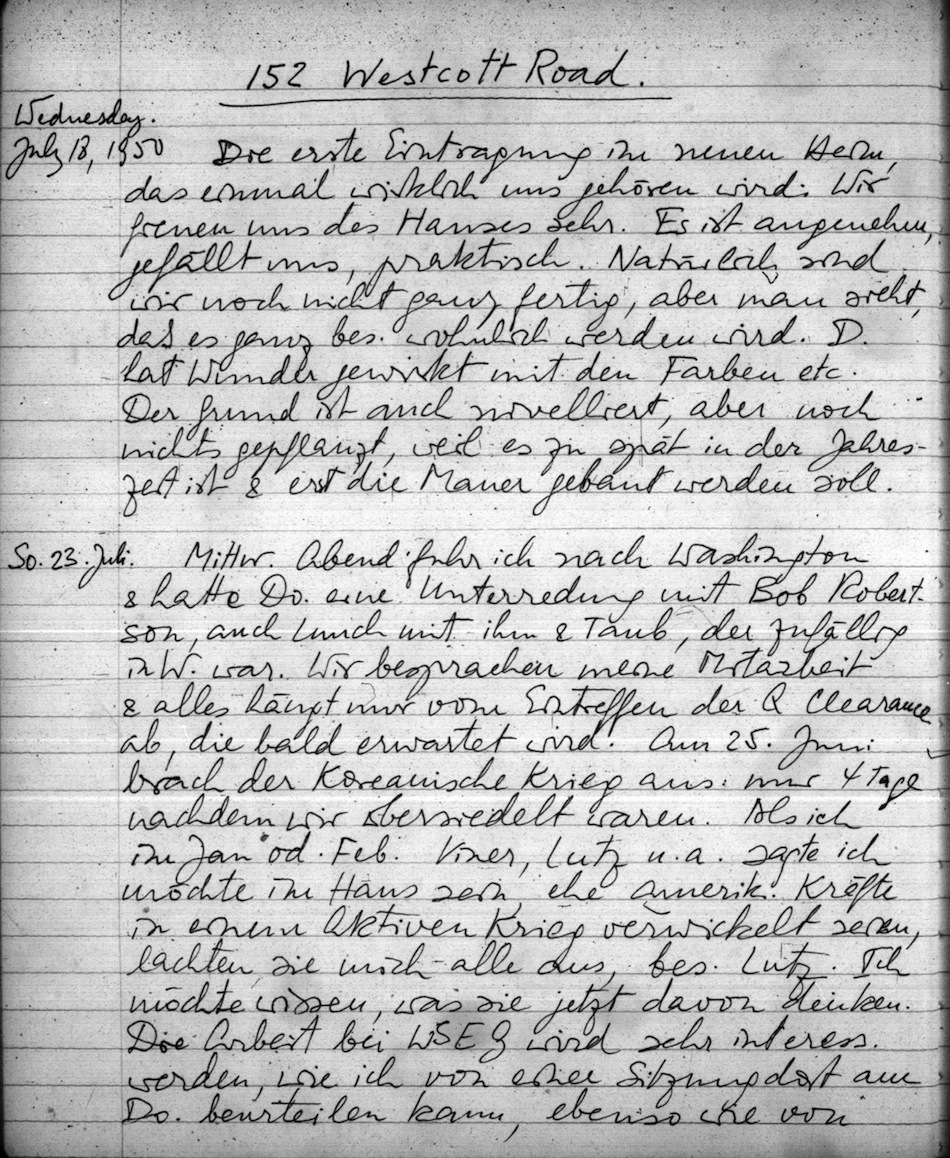 152 Westcott Road.
Wednesday.
July 18, 1950 Die erste Eintragung im neuen Heim,
das einmal wirklich uns gehören wird. Wir
freuen uns des Hauses sehr. Es ist angenehm,
gefällt uns, praktisch. Natürlich sind
wir noch nicht ganz fertig, aber man sieht,
daß es ganz bes. wohnlich werden wird. D.
hat Wunder gewirkt mit den Farben etc.
Der Grund ist auch nivelliert, aber noch
nichts gepflanzt, weil es zu spät in der Jahres-
zeit ist & erst die Mauer gebaut werden soll.
So. 23. Juli. Mittw. Abend fuhr ich nach Washington
& hatte Do. eine Unterredung mit Bob Robert-
son, auch Lunch mit ihm & Taub, der zufällig
in W. war. Wir besprachen meine Mitarbeit
& alles hängt nur vom Eintreffen der Q Clearance
ab, die bald erwartet wird. Am 25. Juni
brach der Koreanische Krieg aus: nur 4 Tage
nachdem wir übersiedelt waren. Als ich
im Jan od. Feb. Viner, Lutz u.a. sagte ich
möchte im Haus sein, ehe amerik. Kräfte
in einem Aktiven Krieg verwickelt seien,
lachten sie mich alle aus, bes. Lutz. Ich
möchte wissen, was sie jetzt davon denken.
Die Arbeit bei WSEG wird sehr interess.
werden, wie ich von einer Sitzung dort am
Do. beurteilen kann, ebenso wie von